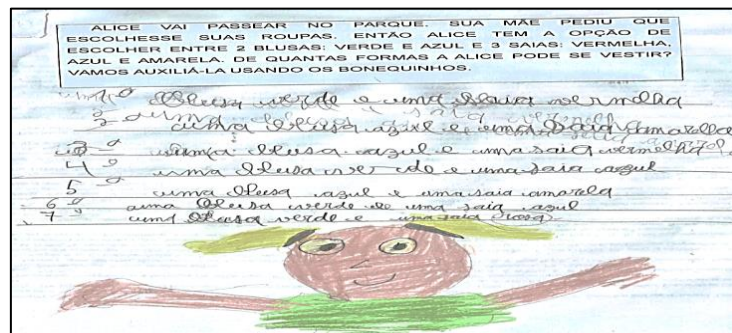 ALICE VAI PASSEAR NO PARQUE. SUA MÃE PEDIU QUE
ESCOLHESSE SUAS ROUPAS. ENTÃO ALICE TEM A OPÇÃO DE
ESCOLHER ENTRE 2 BLUSAS: VERDE E AZUL E 3 SAIAS: VERMELHA,
AZUL E AMARELA. DE QUANTAS FORMAS A ALICE PODE SE VESTIR?
VAMOS AUXILIÁ-LA USANDO OS BONEQUINHOS.
1º Blusa verde e uma saia vermelha
2º uma blusa azul e uma saia amarella
3º uma blusa azul e uma saia vermelha
4º uma blusa verde e uma saia azul
5º uma blusa azul e uma saia amarela
6º uma blusa verde de uma saia azul
7º uma blusa verde e uma saia